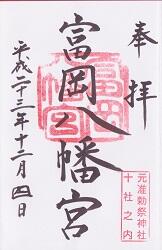 奉拝
富岡八幡宮
平成二十三年十二月四日
元准勅祭神社
十社之内